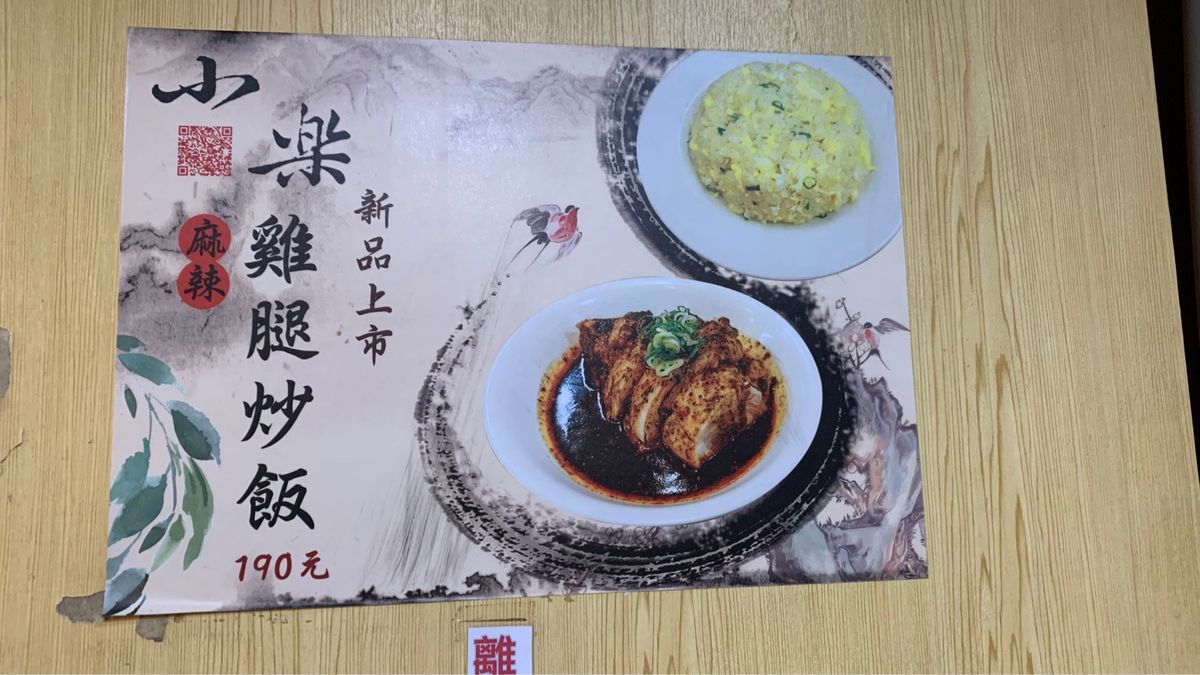 小楽
麻辣
雞腿炒飯
新品上市
190元
離